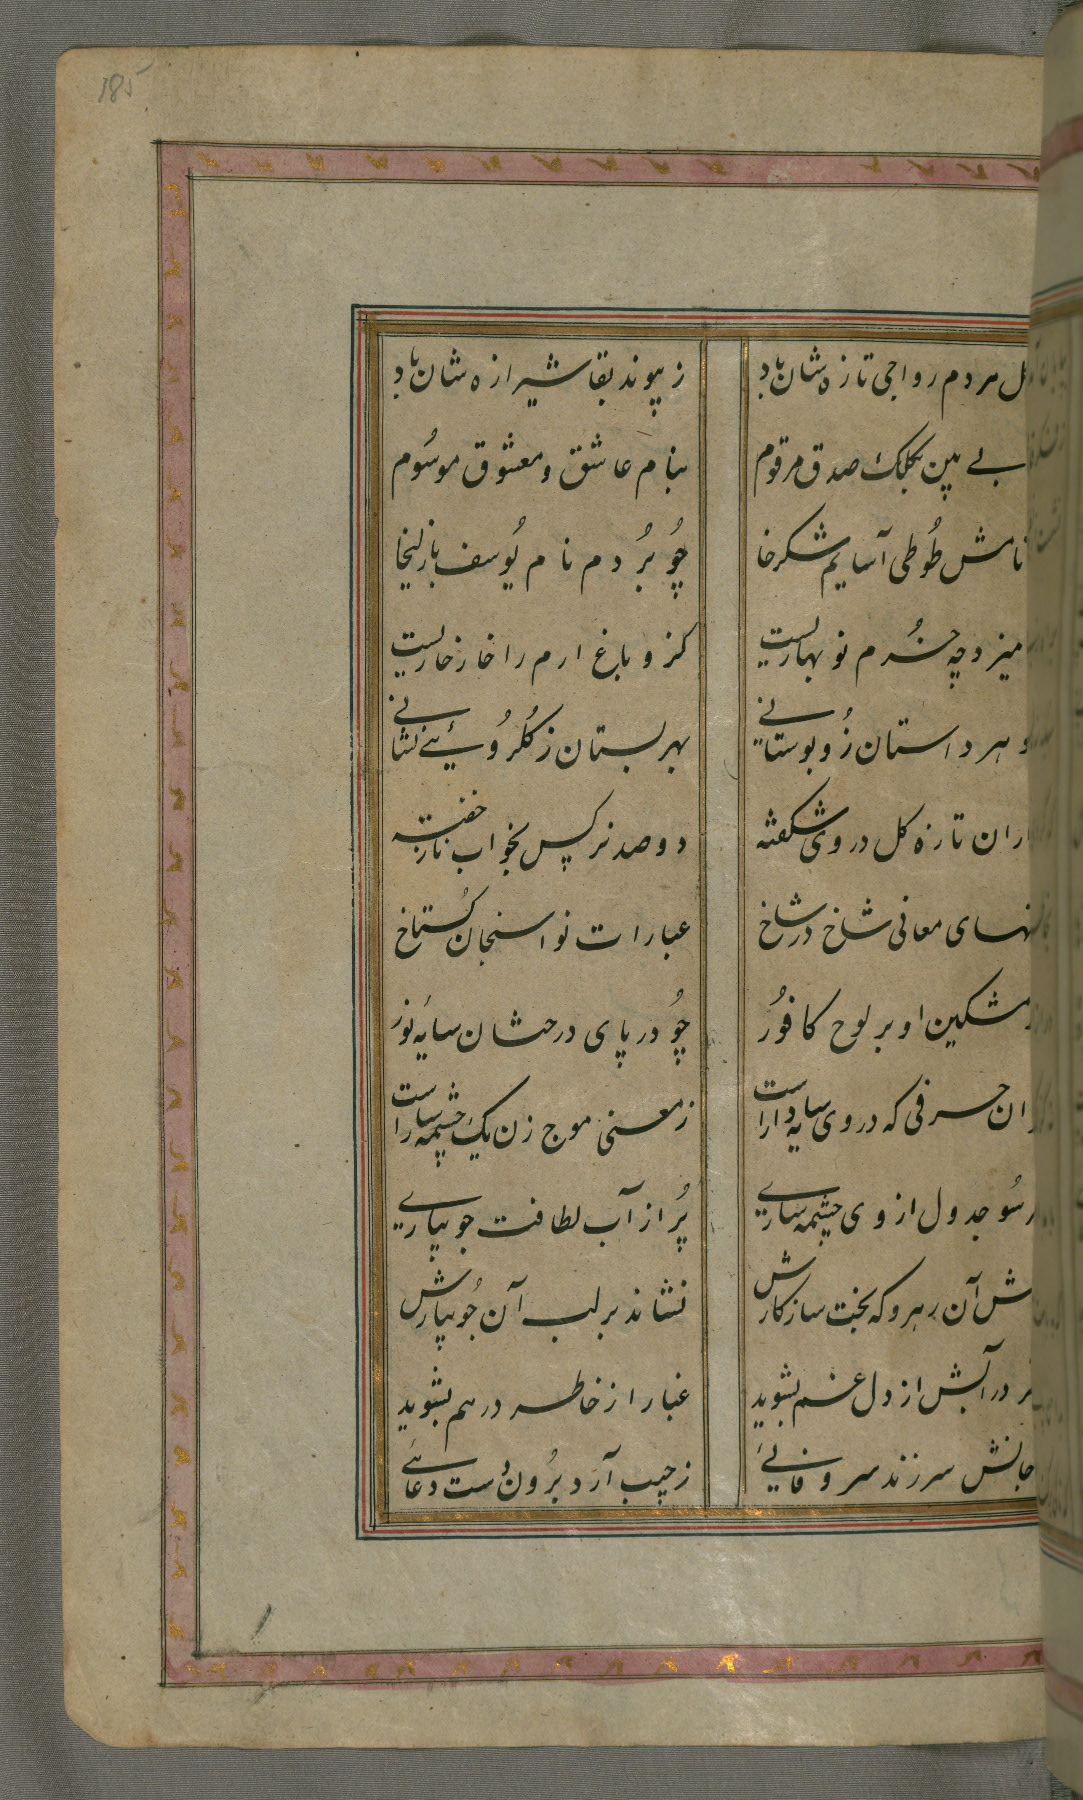 185
ل هر دم رواجی تازه شان باد ز پیوند بقا شیرازه شان باد
بے بین بکلک صدق مرقوم بنام عاشق و معشوق موسُوم
نامش طُوطی آسایم شکرخا چُو بُردم نام یُوسف با زلیخا
میزد چه خُرم نوبهاریست کز و باغ ارم را خارخاریست
هر داستان زُو بوستانے بهر بستان ز گلرُوئے نشانے
اران تازه گل در وی شکفته دو صد نرگس بخواب ناز خفته
نهای معانی شاخ در شاخ عبارات نواسنجان گُستاخ
مشکین او بر لوح کافُور چُو در پای درختان سایه نور
ان حرفی که در وی سایه داراست ز معنی موج زن یک چشمه ساراست
سُو جدول از وی چشمه سارے پُر از آب لطافت جویبارے
ش آن رهرو که بخت سازکارش نشاند بر لب آن جُویبارش
در آبش از دل غم بشوید غبار از خاطر درهم بشوید
جانش سر زند سر وفائے ز جیب آرد بُرون دست دعائے